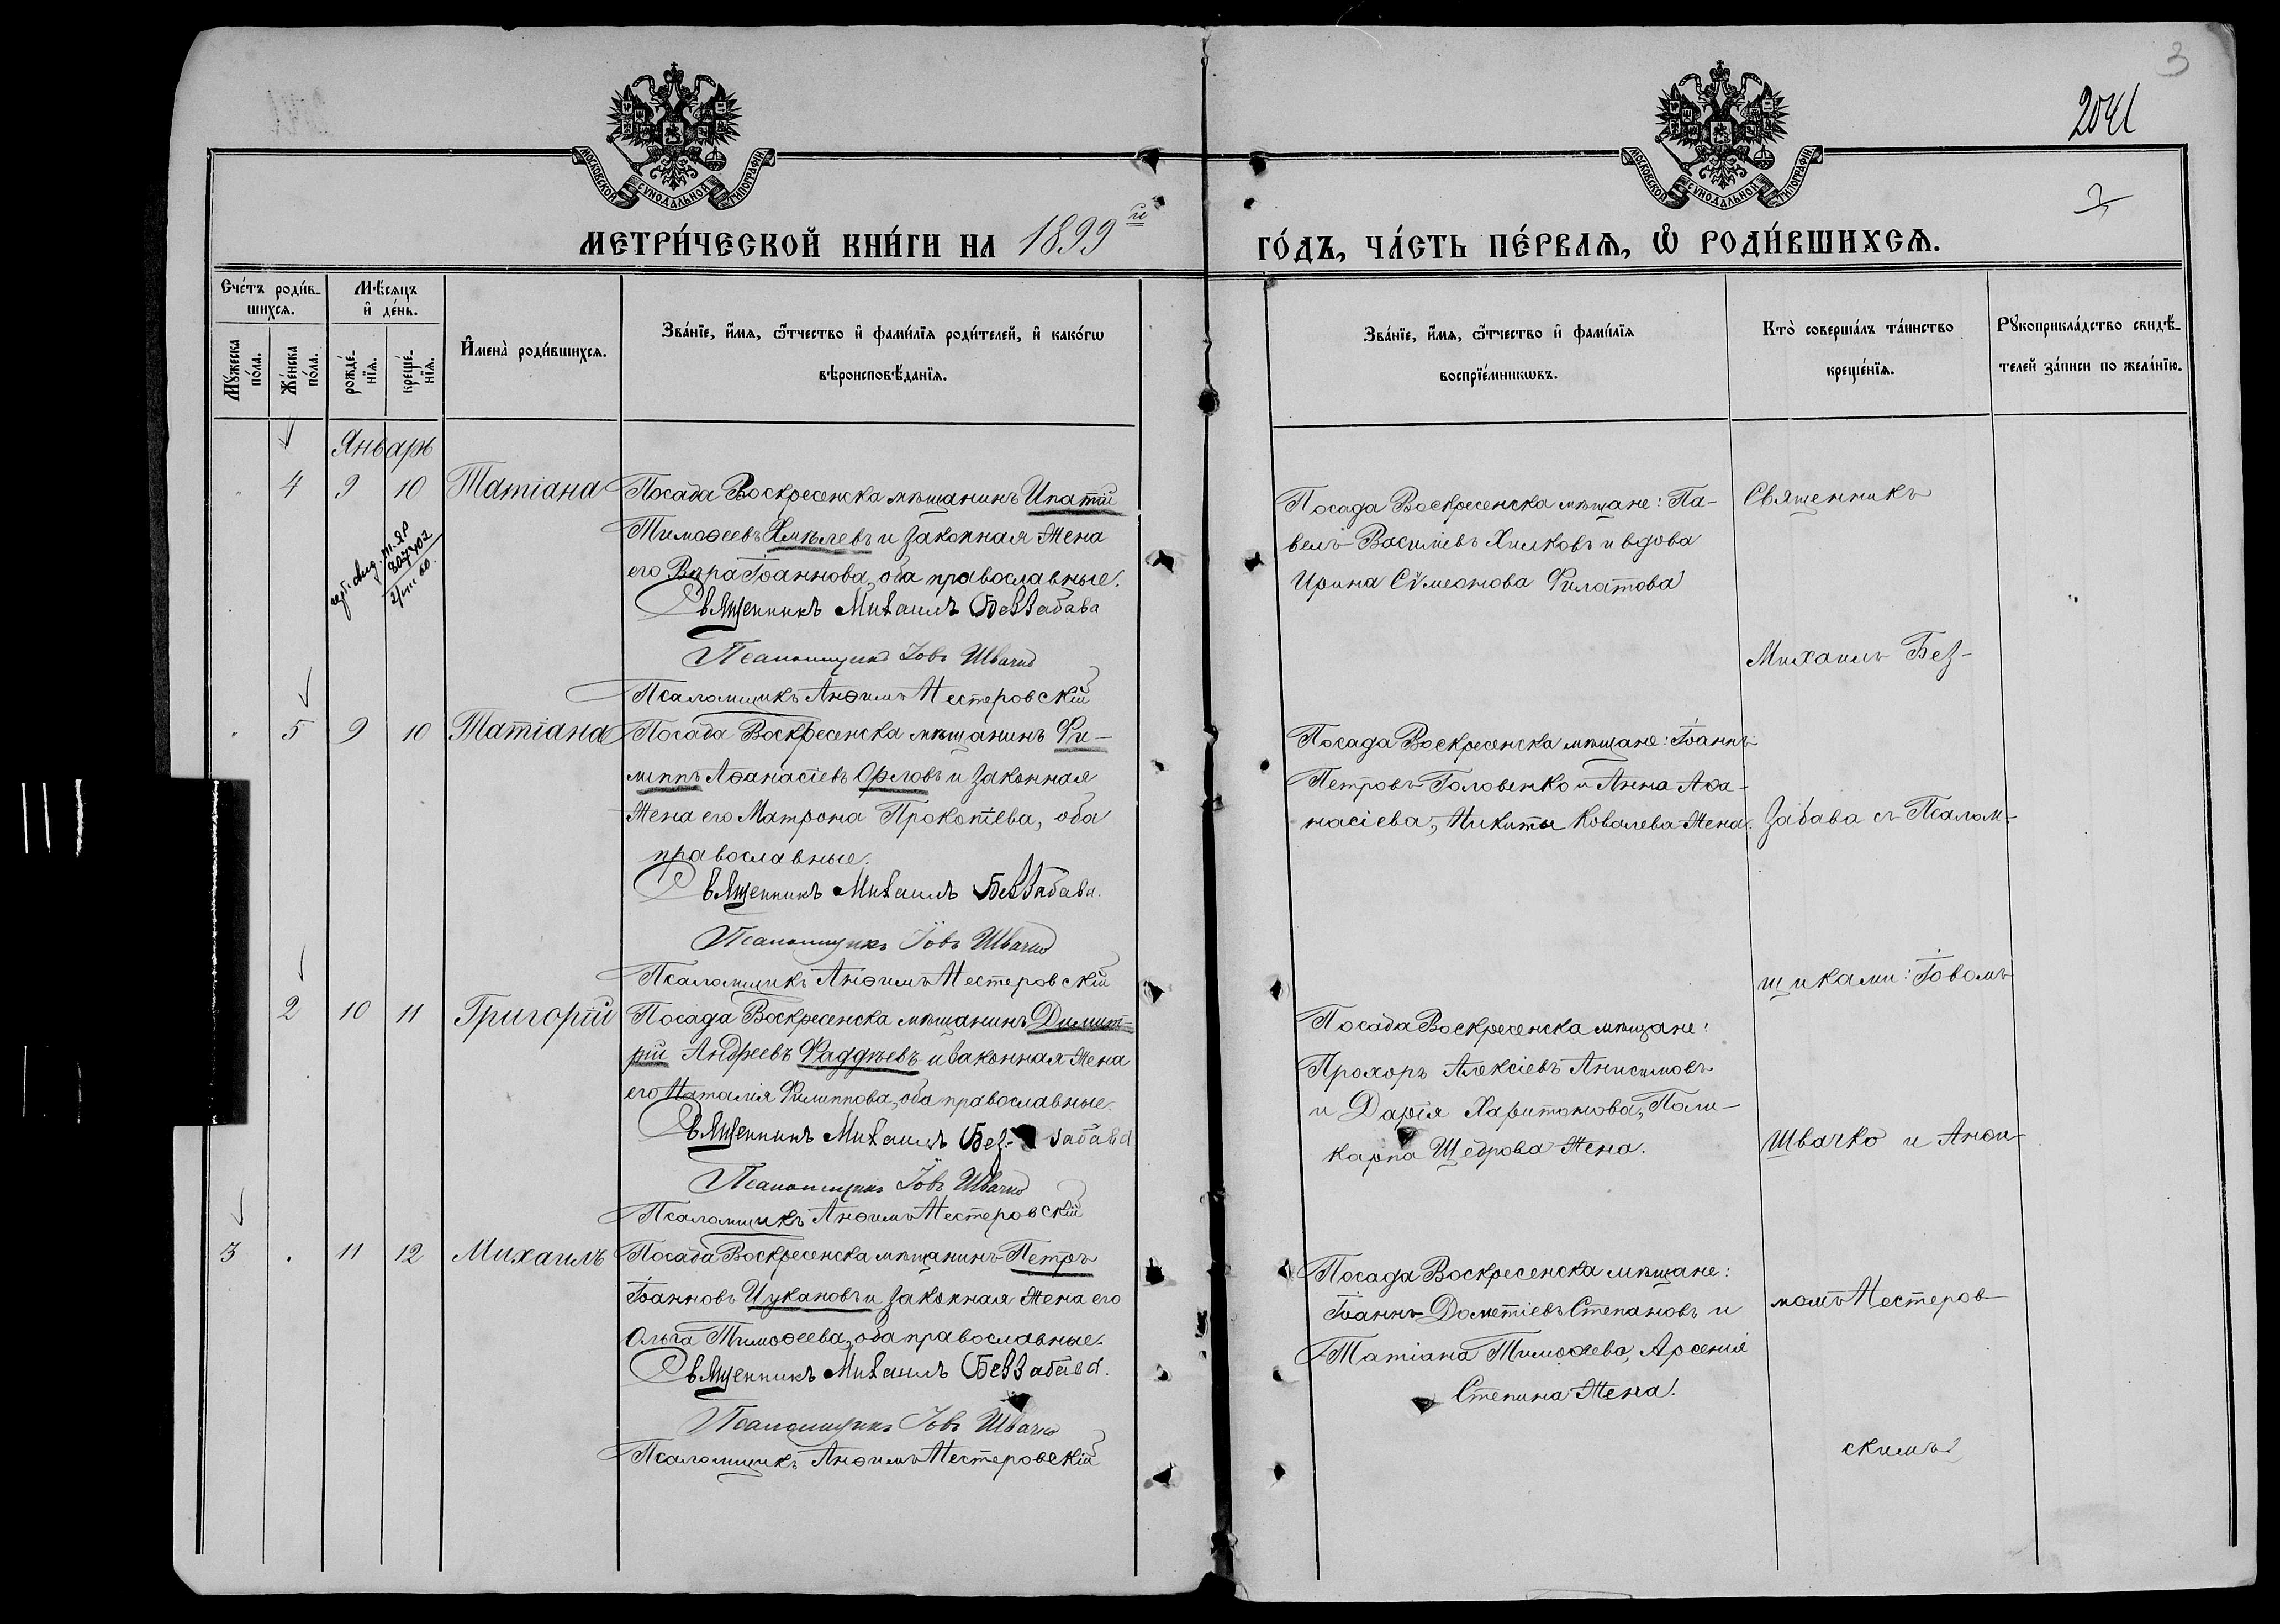 3
2041
3
МОСКОВСКОЙ СѴНОДАЛЬНОЙ ТИПОГРАФІИ.
МОСКОВСКОЙ СѴНОДАЛЬНОЙ ТИПОГРАФІИ.
МЕТРИ́ЧЕСКОЙ КНИ́ГИ НА 1899 й
ГО́ДЪ, ЧА́СТЬ ПЕ́РВАѦ, Ѡ҆ РОДИ́ВШИХСѦ.
Сче́тъ роди́в-
шихсѧ.
Мꙋ́жеска по́ла.
Же́нска по́ла.
Мѣ́сяцъ
и҆ де́нь.
рожде́-
нїѧ.
креще́-
нїѧ.
И҆мена̀ роди́вшихсѧ.
Зва́нїе, и҆́мѧ, ѻ҆́тчество и҆ фами́лїѧ роди́телей, и҆ како́гѡ
вѣроисповѣ́данїѧ.
Зва́нїе, и҆́мѧ, ѻ҆́тчество и҆ фами́лїѧ
воспрїе́мникѡвъ.
Кто̀ соверша́лъ та́инство
креще́нїѧ.
Рꙋкоприкла́дство свидѣ́-
телей за́писи по жела́нїю.
Январь
" 4 9 10 Татіана
Посада Воскресенска мѣщанинъ Ипатій
Тимоѳеевъ Хмѣлевъ и законная жена
его Вѣра Іоаннова, оба православные.
Священникъ Михаилъ Беззабава
Псаломщикъ Іовъ Швачко
Псаломщикъ Анѳимъ Нестеровскій
Посада Воскресенска мѣщане: Па-
велъ Василіевъ Хилковъ и вдова
Ирина Сѵмеонова Филатова
807402
" 5 9 10 Татіана
Посада Воскресенска мѣщанинъ Фи-
липпъ Аѳанасіевъ Орловъ и законная
жена его Матрона Прокопіева, оба
православные.
Священникъ Михаилъ Беззабава.
Псаломщикъ Іовъ Швачко
Псаломщикъ Анѳимъ Нестеровскій
Посада Воскресенска мѣщане: Іоаннъ
Петровъ Головенко и Анна Аѳа-
насіева, Никиты Ковалева жена.
2 10 11 Григорій
Посада Воскресенска мѣщанинъ Димит-
рій Андреевъ Фаддѣевъ и законная жена
его Наталія Филиппова, оба православные.
Священникъ Михаилъ Без-забава
Псаломщикъ Іовъ Швачко
Псаломщикъ Анѳимъ Нестеровскій
Посада Воскресенска мѣщане:
Прохоръ Алексіевъ Анисимовъ
и Дарія Харитонова, Поли-
карпа Щедрова жена.
3 . 11 12 Михаилъ
Посада Воскресенска мѣщанинъ Петръ
Іоанновъ Цукановъ и законная жена его
Ольга Тимоѳеева, оба православные.
Священникъ Михаилъ Беззабава.
Псаломщикъ Іовъ Швачко
Псаломщикъ Анѳимъ Нестеровскій
Посада Воскресенска мѣщане:
Іоаннъ Дометіевъ Степановъ и
Татіана Тимоѳеева, Арсенія
Степина жена.
Священникъ
Михаилъ Без-
забава съ Псалом-
щиками: Іовомъ
Швачко и Анѳи-
момъ Нестеров-
скимъ